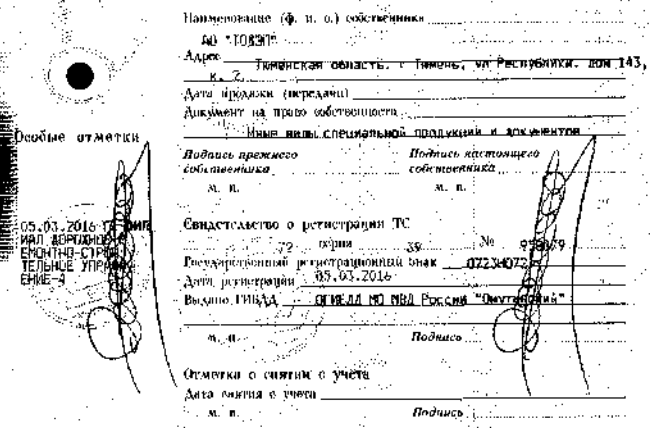 Наименование (ф. и. о.) собственника
АО "ТОДЭП"
Адрес Тюменская область, г Тюмень, ул Республики, дом 143,
к. 2
Дата продажи (передачи)
Документ на право собственности
Иные виды специальной продукции и документов
Особые отметки
Подпись прежнего собственника
Подпись настоящего собственника
М. п.
М. п.
05.03.2016
ИАЛ ДОРОЖНОЕ
ЕМОНТНО-СТРОИ
ТЕЛЬНОЕ УПРАВЛ
ЕНИЕ-4
Свидетельство о регистрации ТС
72 серия 39 №
Государственный регистрационный знак
Дата регистрации 05.03.2016
Выдано ГИБДД ОГИБДД МО МВД России "Омутинский"
М. п.
Подпись
Отметка о снятии с учета
Дата снятия с учета
М. п.
Подпись